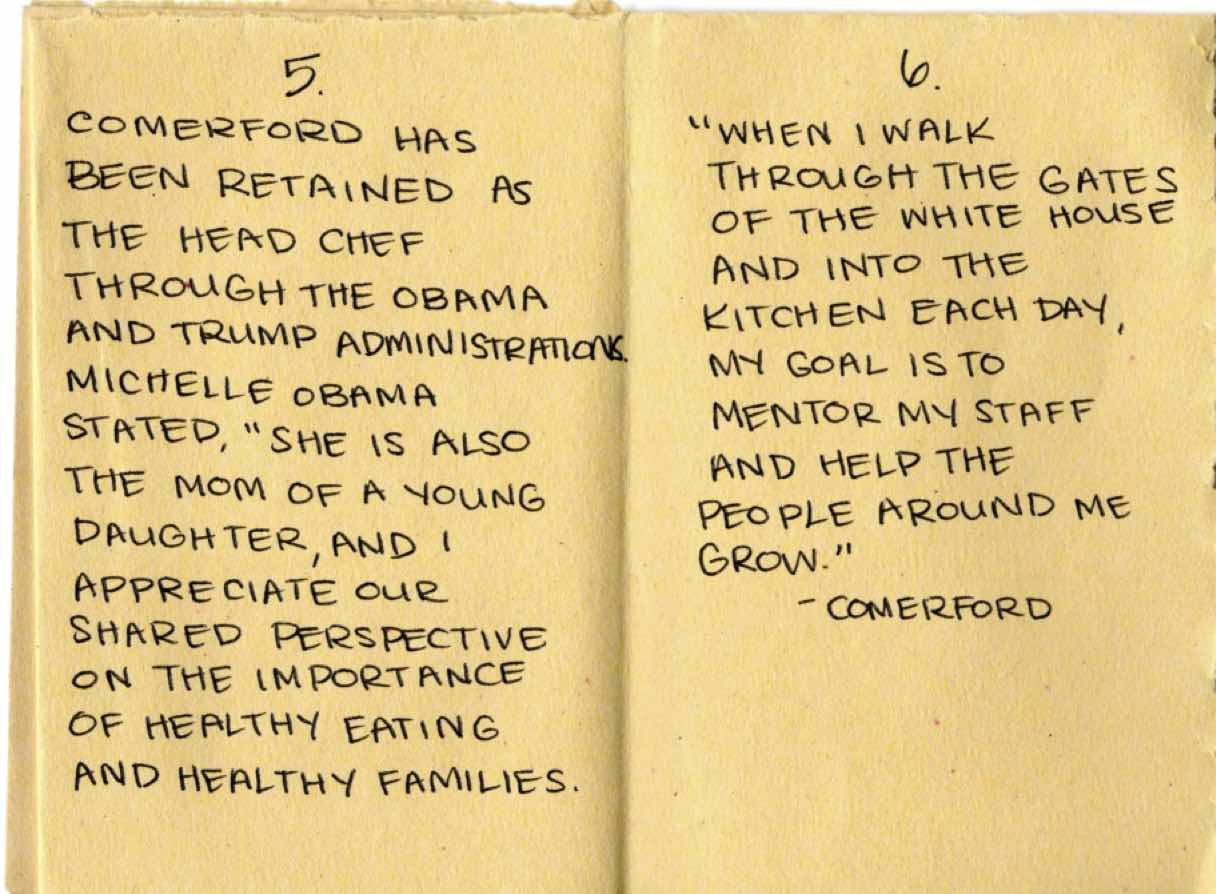 5.
COMERFORD HAS
BEEN RETAINED AS
THE HEAD CHEF
THROUGH THE OBAMA
AND TRUMP ADMINISTRATIONS.
MICHELLE OBAMA
STATED, "SHE IS ALSO
THE MOM OF A YOUNG
DAUGHTER, AND I
APPRECIATE OUR
SHARED PERSPECTIVE
ON THE IMPORTANCE
OF HEALTHY EATING
AND HEALTHY FAMILIES.
6.
"WHEN I WALK
THROUGH THE GATES
OF THE WHITE HOUSE
AND INTO THE
KITCHEN EACH DAY,
MY GOAL IS TO
MENTOR MY STAFF
AND HELP THE
PEOPLE AROUND ME
GROW."
- COMERFORD